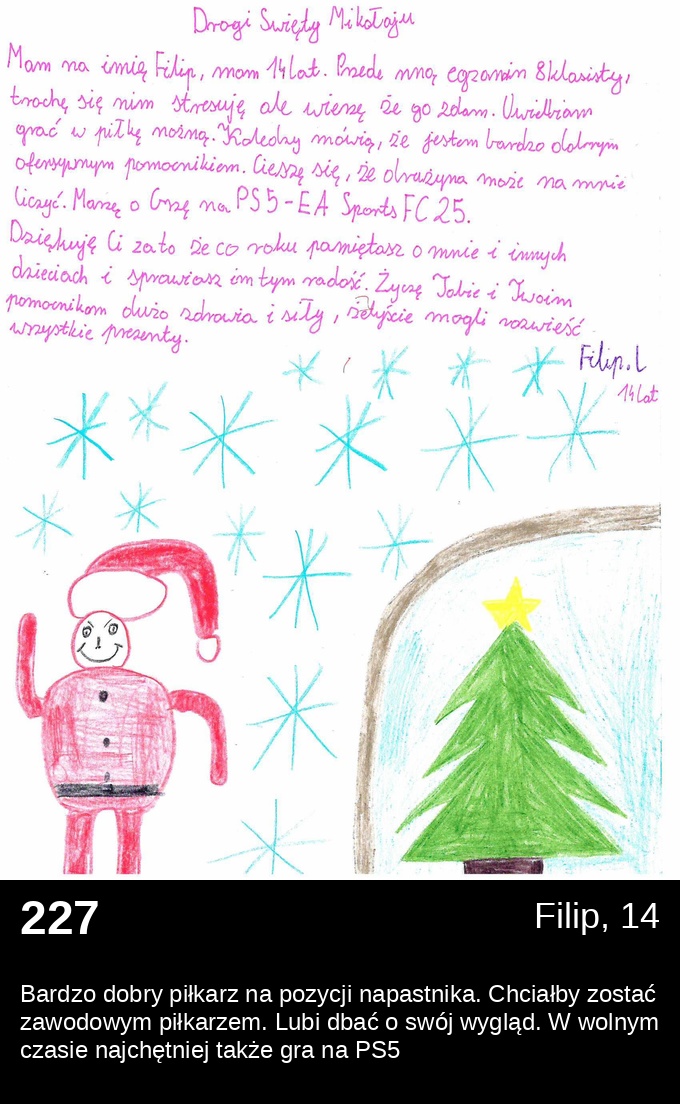 Drogi Święty Mikołaju
Mam na imię Filip, mam 14 lat. Przede mną egzamin 8klasisty,
trochę się nim stresuję ale wierzę że go zdam. Uwielbiam
grać w piłkę nożną. Koledzy mówią, że jestem bardzo dobrym
ofensywnym pomocnikiem. Cieszę się, że drużyna może na mnie
liczyć. Marzę o Grze na PS5-EA Sports FC 25.
Dziękuję Ci za to że co roku pamiętasz o mnie i innych
dzieciach i sprawiasz im tym radość. Życzę Tobie i Twoim
pomocnikom dużo zdrowia i siły, żebyście mogli rozwieść
wszystkie prezenty.
Filip.L
14 lat
227
Filip, 14
Bardzo dobry piłkarz na pozycji napastnika. Chciałby zostać
zawodowym piłkarzem. Lubi dbać o swój wygląd. W wolnym
czasie najchętniej także gra na PS5